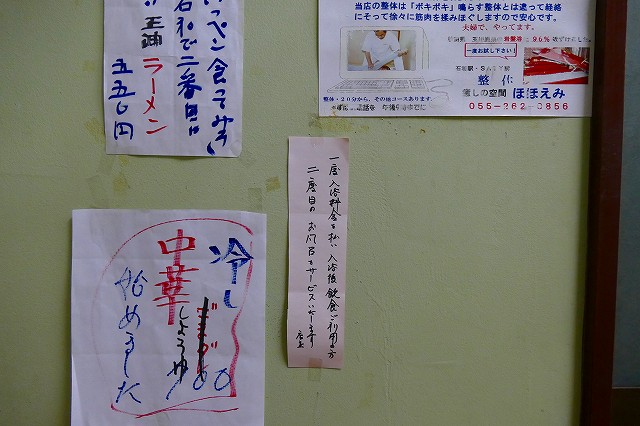 いっペん食ってみろ
石和で二番目に
玉神ラーメン
五五〇円
当店の整体は「ボキボキ」鳴らす整体とは違って経絡
にそって徐々に筋肉を揉みほぐしますので安心です。
夫婦で、やってます。
一度お試し下さい!
整体
癒しの空間 ほほえみ
整体・20分から、その他コースあります。
055-262-0856
一度入浴料金を払い入浴後飲食ご利用の方
二度目のお風呂をサービスいたします
店主
冷し
中華
しょうゆ
の
始めました